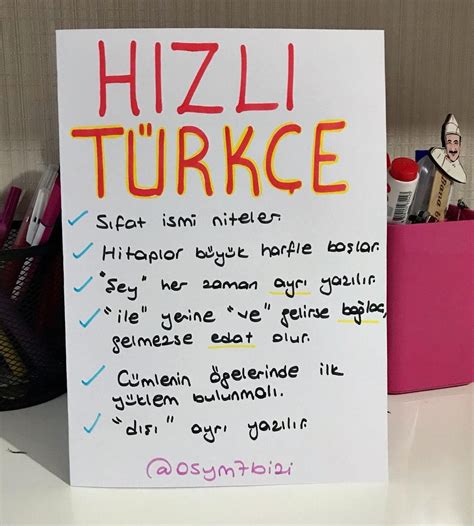 HIZLI
TÜRKÇE
Sıfat ismi niteler.
Hitaplar büyük harfle başlar.
"Şey" her zaman ayrı yazılır.
"ile" yerine "ve" gelirse bağlaç,
gelmezse edat olur.
Cümlenin ögelerinde ilk
yüklem bulunmalı.
"dışı" ayrı yazılır.
@osym7bizi